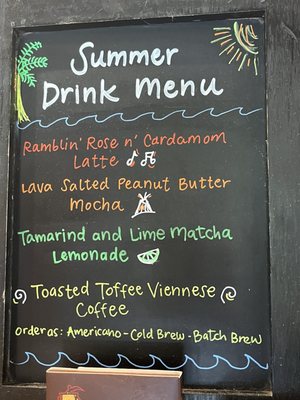 Summer
Drink Menu
Ramblin' Rose n' Cardamom
Latte
Lava Salted Peanut Butter
Mocha
Tamarind and Lime Matcha
Lemonade
Toasted Toffee Viennese
Coffee
order as: Americano - Cold Brew - Batch Brew